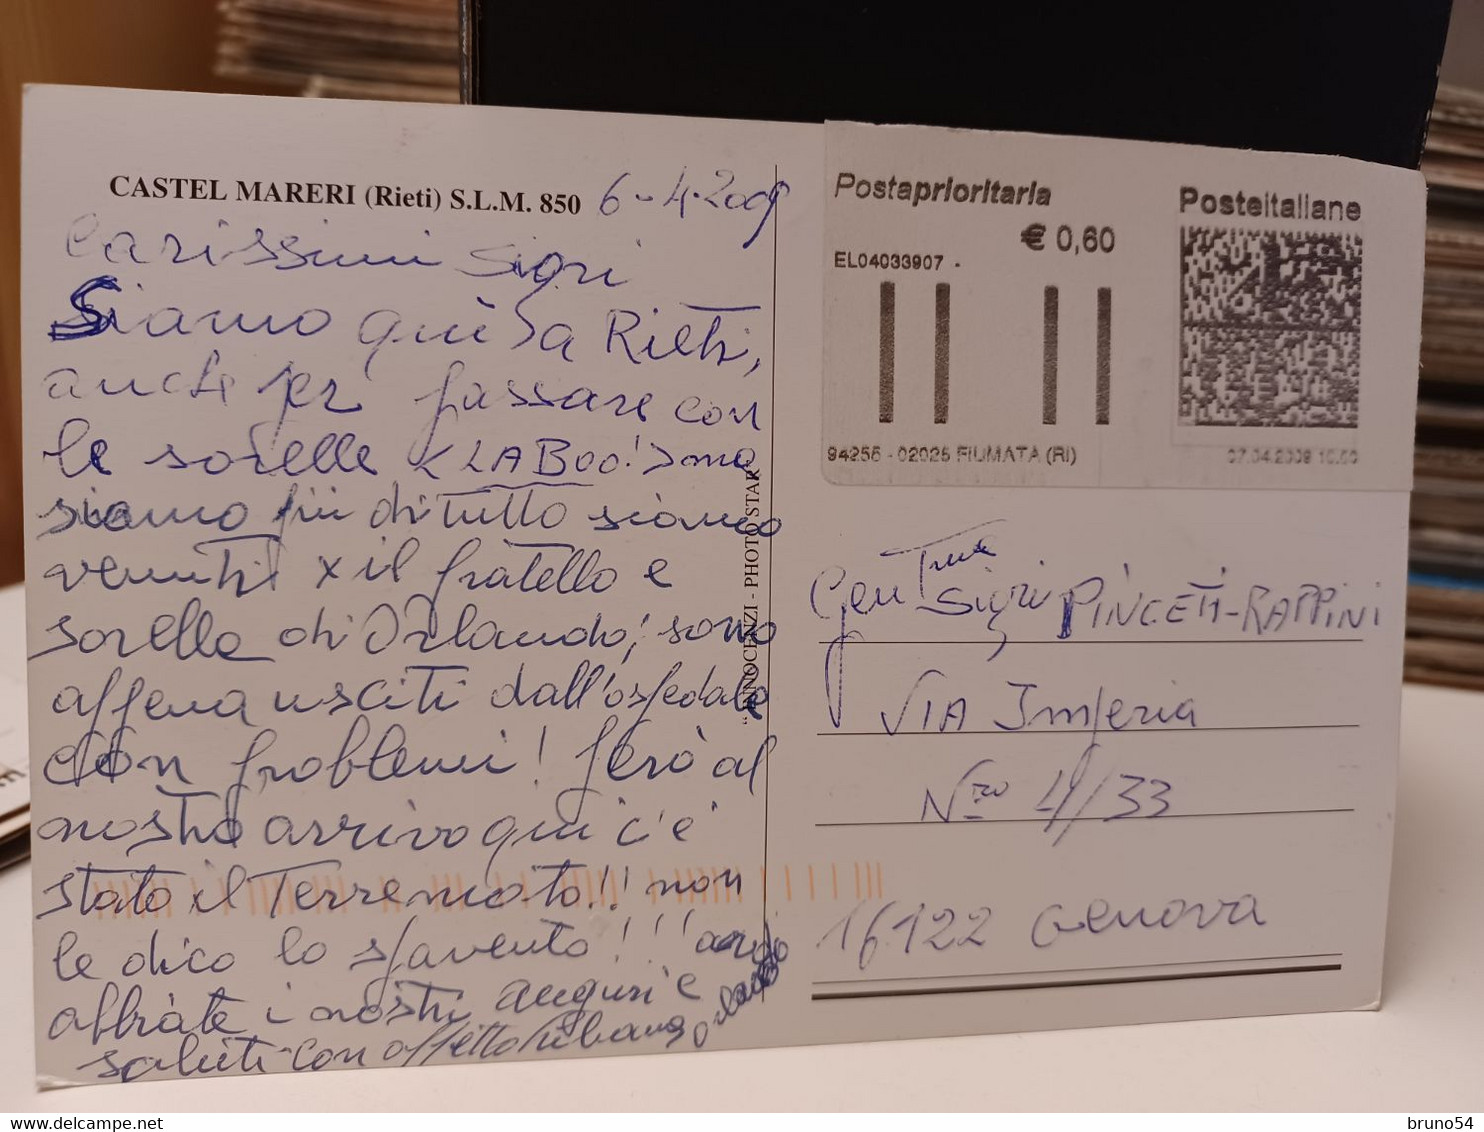 CASTEL MARERI (Rieti) S.L.M. 850 6-4-2009
Carissimi Sigri
Siamo qui a Rieti,
anche per passare con
le sorelle
siamo più di tutto siamo
venuti x il fratello e
sorella di Orlando, sono
appena usciti dall'ospedale
con problemi! però al
nostro arrivo qui c'è
stato il Terremoto!! non
le dico lo spavento!!!
abbiate i nostri auguri e
saluti con affetto Orlando
"INNOCENZI - PHOTO STAR"
Postaprioritaria
€ 0,60
EL04033907 -
94255 - 02025 FIUMATA (RI)
Posteitaliane
07.04.2009 10.00
Gentme Sigri PINCETI-RAPPINI
VIA Imperia
Nro 4/33
16122 Genova
bruno54